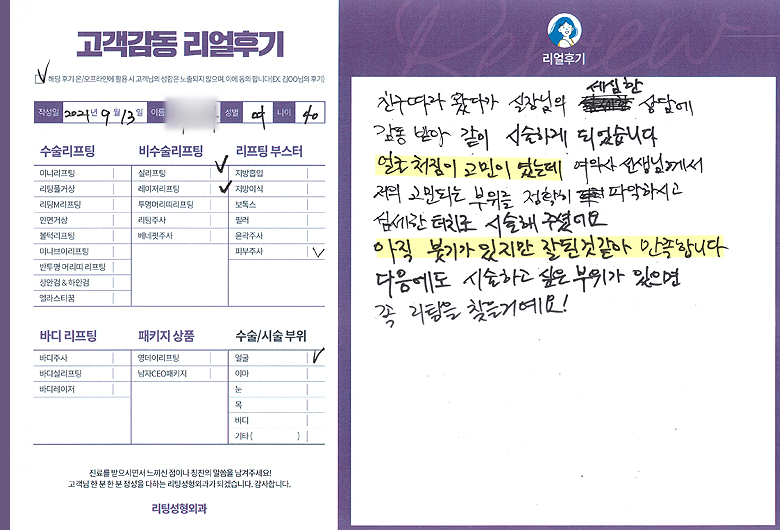 고객감동 리얼후기
해당 후기 온/오프라인에 활용 시 고객님의 성함은 노출되지 않으며, 이에 동의 합니다(EX. 김OO님의 후기)
작성일 2021년 9월 13일 이름 성별 여 나이 40
수술리프팅
미니리프팅
리팅풀거상
리팅M리프팅
안면거상
볼턱리프팅
미니브이리프팅
반투명 머리띠 리프팅
상안검 & 하안검
엘라스티꿈
비수술리프팅
실리프팅
레이저리프팅
투명머리띠리프팅
리팅주사
베네핏주사
리프팅 부스터
지방흡입
지방이식
보톡스
필러
윤곽주사
피부주사
바디 리프팅
바디주사
바디실리프팅
바디레이저
패키지 상품
영데이리프팅
남자CEO패키지
수술/시술 부위
얼굴
이마
눈
목
바디
기타 ( )
진료를 받으시면서 느끼신 점이나 칭찬의 말씀을 남겨주세요!
고객님 한 분 한 분 정성을 다하는 리팅성형외과가 되겠습니다. 감사합니다.
리팅성형외과
Review
리얼후기
친구따라 왔다가 실장님의 세심한 상담에
감동 받아 같이 시술하게 되었습니다
얼굴처짐이 고민이 였는데 여의사 선생님께서
저의 고민되는 부위를 정확히 파악하시고
섬세한 터치로 시술해 주셨어요
아직 붓기가 있지만 잘된것같아 만족합니다
다음에도 시술하고 싶은 부위가 있으면
꼭 리팅을 찾을거예요!